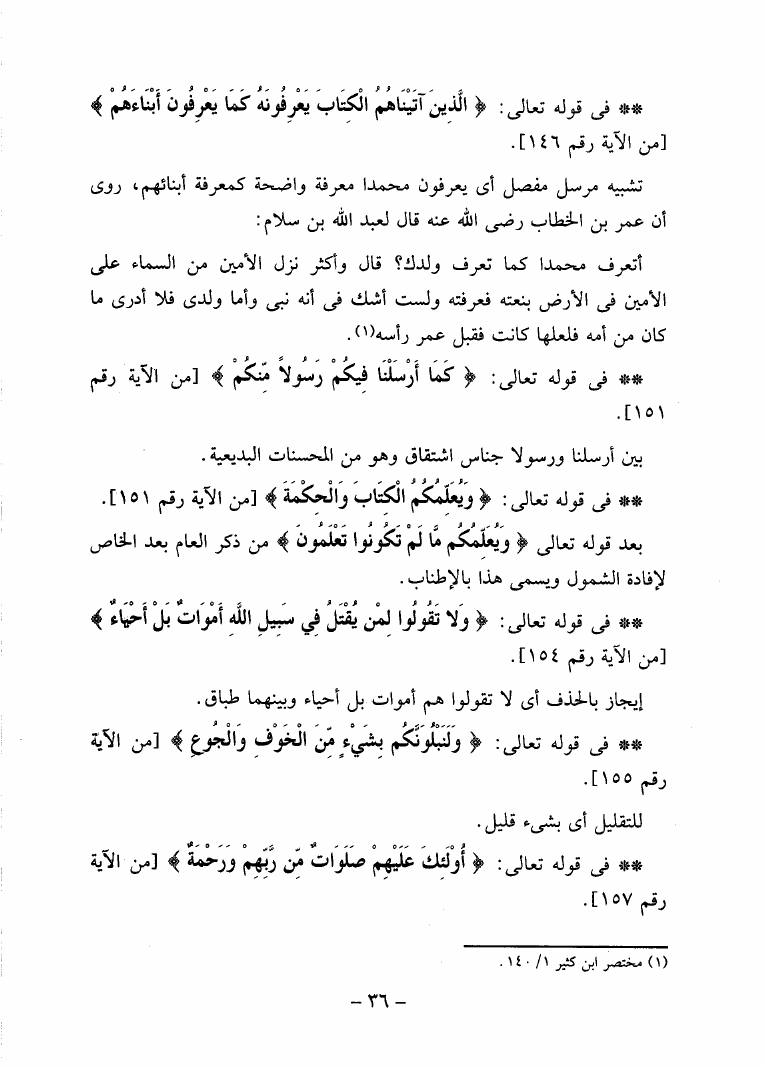 ** فى قوله تعالى: ﴿ الَّذِينَ آتَيْنَاهُمُ الْكِتَابَ يَعْرِفُونَهُ كَمَا يَعْرِفُونَ أَبْنَاءَهُمْ ﴾
[من الآية رقم ١٤٦].
تشبيه مرسل مفصل أى يعرفون محمدا معرفة واضحة كمعرفة أبنائهم، روى
أن عمر بن الخطاب رضى الله عنه قال لعبد الله بن سلام:
أتعرف محمدا كما تعرف ولدك؟ قال وأكثر نزل الأمين من السماء على
الأمين فى الأرض بنعته فعرفته ولست أشك فى أنه نبى وأما ولدى فلا أدرى ما
كان من أمه فلعلها كانت فقبل عمر رأسه(١).
** فى قوله تعالى: ﴿ كَمَا أَرْسَلْنَا فِيكُمْ رَسُولاً مِّنكُمْ ﴾ [من الآية رقم
١٥١].
بين أرسلنا ورسولا جناس اشتقاق وهو من المحسنات البديعية.
** فى قوله تعالى: ﴿ وَيُعَلِّمُكُمُ الْكِتَابَ وَالْحِكْمَةَ ﴾ [من الآية رقم ١٥١].
بعد قوله تعالى ﴿ وَيُعَلِّمُكُم مَّا لَمْ تَكُونُوا تَعْلَمُونَ ﴾ من ذكر العام بعد الخاص
لإفادة الشمول ويسمى هذا بالإطناب.
** فى قوله تعالى: ﴿ وَلا تَقُولُوا لِمَن يُقْتَلُ فِي سَبِيلِ اللَّهِ أَمْوَاتٌ بَلْ أَحْيَاءٌ ﴾
[من الآية رقم ١٥٤].
إيجاز بالحذف أى لا تقولوا هم أموات بل أحياء وبينهما طباق.
** فى قوله تعالى: ﴿ وَلَنَبْلُوَنَّكُم بِشَيْءٍ مِّنَ الْخَوْفِ وَالْجُوعِ ﴾ [من الآية
رقم ١٥٥].
للتقليل أى بشىء قليل.
** فى قوله تعالى: ﴿ أُوْلَئِكَ عَلَيْهِمْ صَلَوَاتٌ مِّن رَّبِّهِمْ وَرَحْمَةٌ ﴾ [من الآية
رقم ١٥٧].
(١) مختصر ابن كثير ١/ ١٤٠.
– ٣٦ –